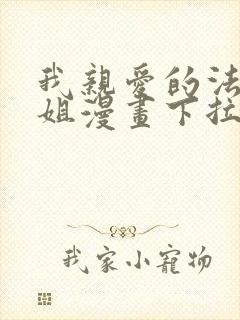 我親愛的法
姐漫畫下拉
我家小寵物